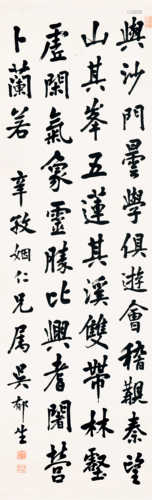 與沙門曇學俱遊會稽觀秦望
山其峯五蓮其溪雙帶林壑
虛閑氣象靈勝比興者闍菩
卜蘭若
辛孜姻仁兄屬 吳郁生